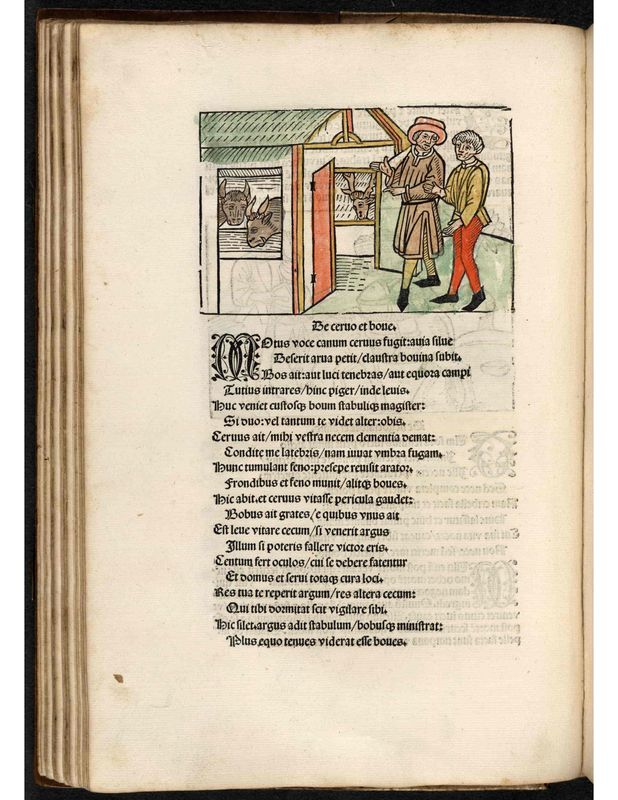 De ceruo et boue.
MOtus voce canum ceruus fugit: auia silue
Deserit arua petit/ claustra bouina subit.
Bos ait: aut luci tenebras/ aut equora campi
Tutius intrares/ hinc piger/ inde leuis.
Huc veniet custosq̃ boum stabuliq̃ magister:
Si duo: vel tantum te videt alter: obis.
Ceruus ait/ mihi vestra necem clementia demat:
Condite me latebris/ nam iuuat vmbra fugam.
Hunc tumulant feno: presepe reuisit arator:
Frondibus et feno munit/ alitq̃ boues.
Hic abit. et ceruus vitasse pericula gaudet:
Bobus ait grates/ e quibus vnus ait
Est leue vitare cecum/ si venerit argus
Illum si poteris fallere victor eris.
Centum fert oculos/ cui se debere fatentur
Et domus et serui totaq̃ cura loci.
Res tua te reperit argum/ res altera cecum:
Qui tibi dormitat scit vigilare sibi.
Hic silet. argus adit stabulum/ bobusq̃ ministrat:
Plus equo tenues viderat esse boues.